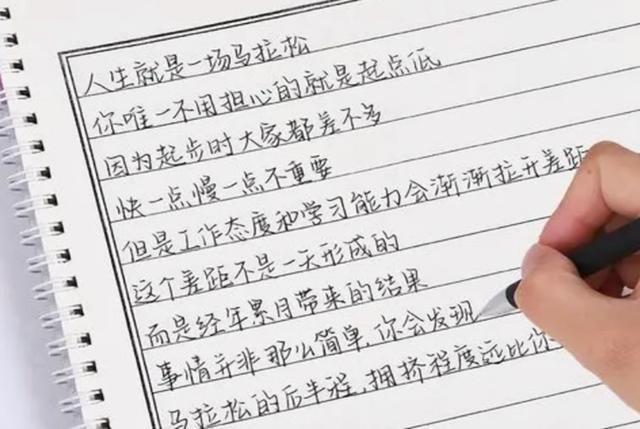 人生就是一场马拉松
你唯一不用担心的就是起点低
因为起步时大家都差不多
快一点慢一点不重要
但是工作态度和学习能力会渐渐拉开差距
这个差距不是一天形成的
而是经年累月带来的结果
事情并非那么简单,你会发现
马拉松的后半程,拥挤程度远比你